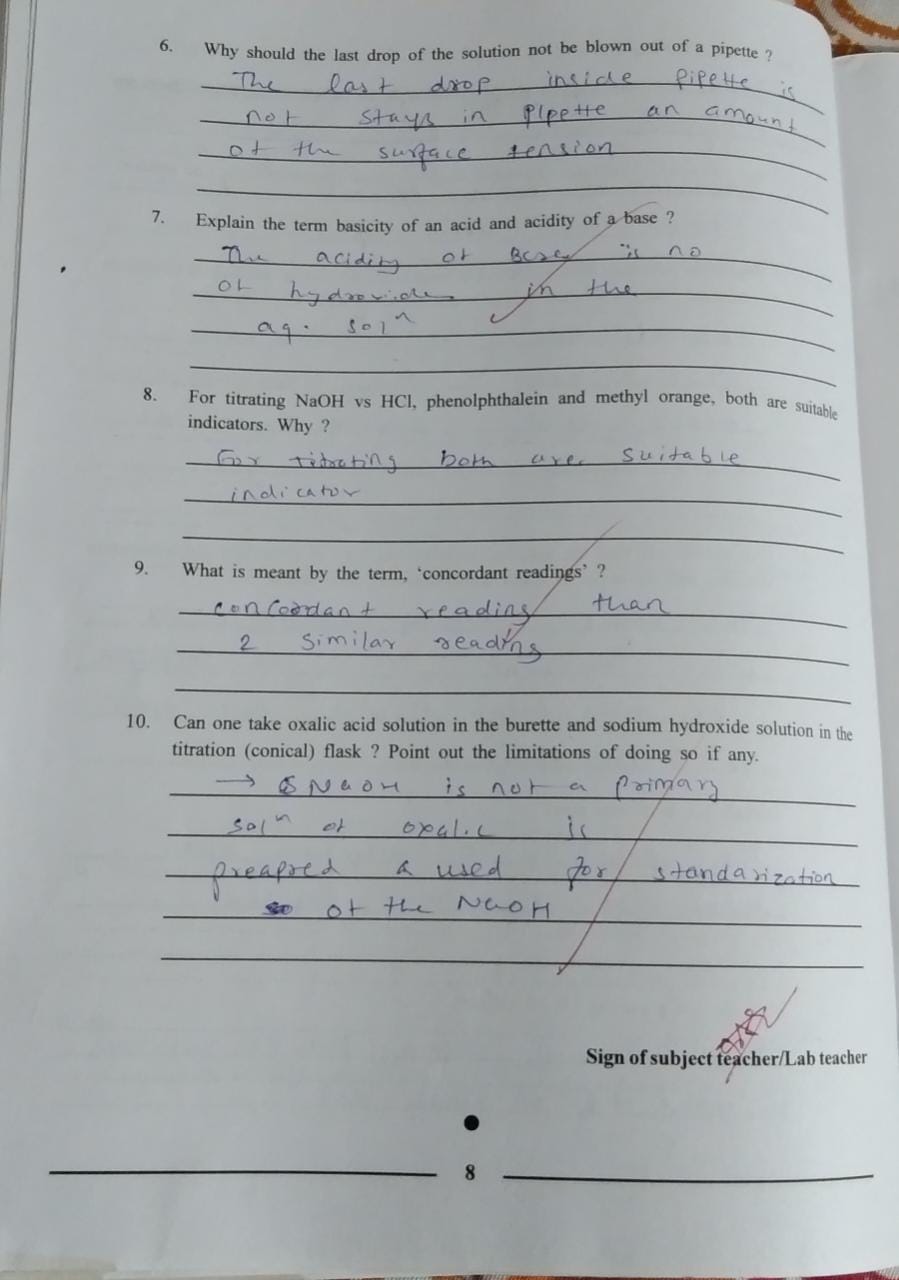 6. Why should the last drop of the solution not be blown out of a pipette ?
The last drop inside Pipette is
not stays in Pipette an amount
of the surface tension
7. Explain the term basicity of an acid and acidity of a base ?
The acidity of Base is no
of hydroxides in the
aq. solⁿ
8. For titrating NaOH vs HCl, phenolphthalein and methyl orange, both are suitable
indicators. Why ?
For titrating both are suitable
indicator
9. What is meant by the term, ‘concordant readings’ ?
concordant reading than
2 similar reading
10. Can one take oxalic acid solution in the burette and sodium hydroxide solution in the
titration (conical) flask ? Point out the limitations of doing so if any.
→ NaOH is not a primary
solⁿ of oxalic is
preapred & used for standarization
of the NaOH
Sign of subject teacher/Lab teacher
8